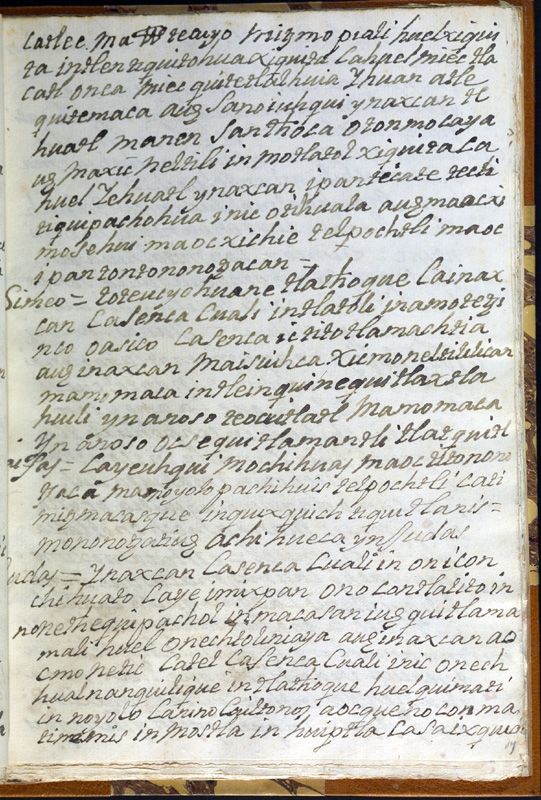 catlee. ma tecuyo mitzmo piali huelxiqui
ta intlen tiquitohua xiquita ca huel miec tla
catl onca miec quitetlathuia yhuan atle
quitemaca auh san oiuhqui ynaxcan te
huatl manen san thoca otonmocaya
auh maxic neltili in motlatol xiquita ca
huel yehuatl ynaxcan ipan tecate techi
tiquipachohua inic otihuala auh maocxi
mosehui maocxichie telpochtli maoc
ipan tontononotzacan =
Simeo = toteucyohuane tlathoque ca inax
can casenca cuali intlatoli inamotetzi
nco oasico casenca ictitotlamachtia
auh inaxcan maisiuhca xicmoneltililican
mamimaca intlein quinequi tlaxtla
huili yn anoso teocuitlatl mamomaca
yn anoso ocsequi tlamantli tlatquitl
fas = cayeuhqui mochihuas maoctitonono
tzaca mamoyolo pachihuis telpochtli cati
mitzmacasque inquixquich tiquitlanis =
mononotzazque achi hueca yn Judas
Judas = ynaxcan casenca cuali in onicon
chihuato caye imixpan onocontlalito in
nonetequipachol inmacasan iuhquitlama
mali huel onechtoliniaya auh inaxcan ao
cmo netic catel casenca cuali inic onech
hualnanquilique in tlathoque huel quimati
in noyolo canino cuiltonos aocque noconma
timanis in mostla in huiptla casa ixquich